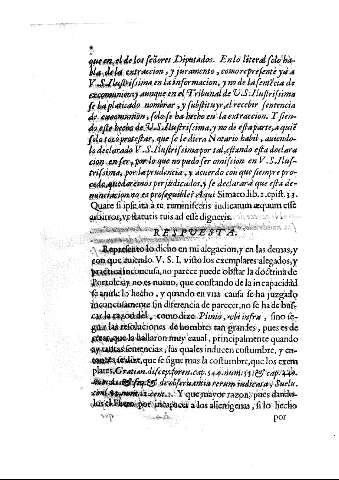 que en, el de los señores Diputados. En lo literal solo ha-
bla de la extraccion, y juramento, como representè ya a
V. S. Ilustrissima en la informacion, y no de la sentēcia de
excomunion; y aunque en el Tribunal de V. S. Ilustrissima
se ha platicado nombrar, y substituyr, el recebir sentencia
de excomunion, solo se ha hecho en la extraccion. Y sien-
do este hecho de V. S. Ilustrissima, y no de esta parte, a quiē
solo tocò protestar, que se le diera Notario habil, auiendo-
lo declarado V. S. Ilustrissima por tal, estando esta declara
cion en ser, por lo que no pudo ser omission en V. S. Ilus-
trissima, por la prudencia, y acuerdo con que siempre pro-
cede, quedaremos perjudicados, y se declararà que esta de-
nunciacion no es proseguible? Aqui Simaco lib. 2. epist. 33.
Quare si aplicita à te ruminisceris indicatum æquum esse
arbitror, vt statutis tuis ad esse digneris.
RESPUESTA.
Represento lo dicho en mi alegacion, y en las demas, y
con que auiendo V. S. I. visto los exemplares alegados, y
practica inconcusa, no parece puede obstar la doctrina de
Portoles, y no es nueuo, que constando de la incapacidad
se anule lo hecho, y quando en vna causa se ha juzgado
inconcusamente sin diferencia de parecer, no se ha de bus-
car la razon del, como dize Plinio, vbi infra, sino se-
guir las resoluciones de hombres tan grandes, pues es de
creer, que la hallaron muy caual, principalmente quando
ay tantas sentencias, las quales inducen costumbre, y en-
tonces se dize, que se sigue mas la costumbre, que los exem
plares. Gratian. discep. foren. cap. 544. num. 55. & cap. 440.
de obseruantia rerum iudicata, y Suelu.
Y que mayor razon, pues dando-
los el Fuero por incapaces a los alienigenas, si lo hecho
por